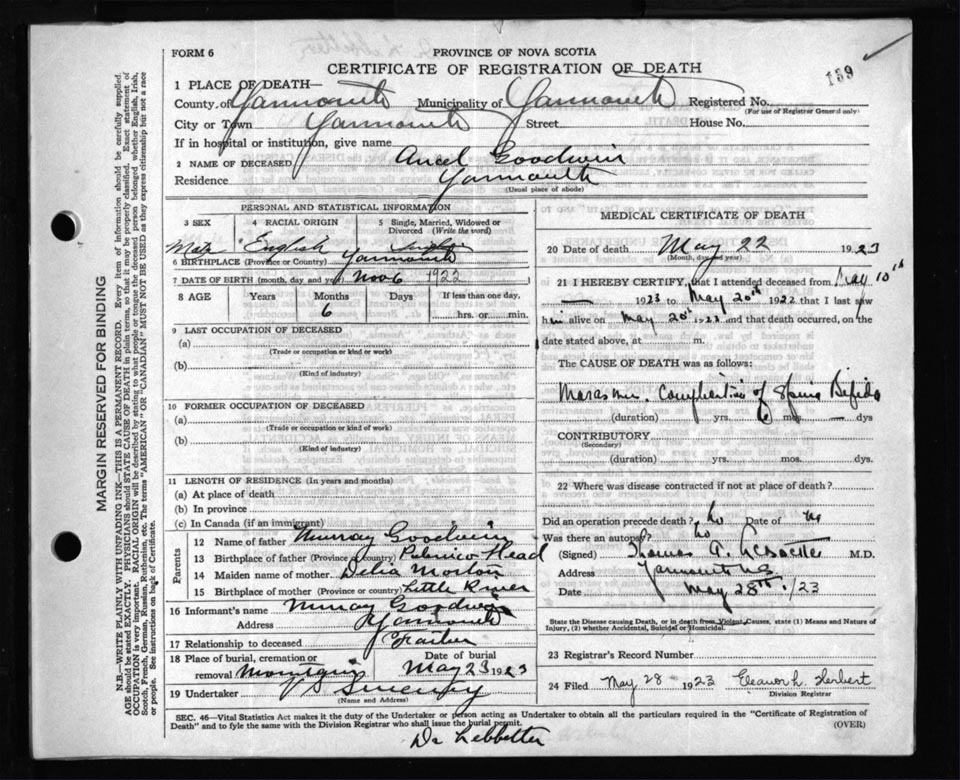 FORM 6
PROVINCE OF NOVA SCOTIA
CERTIFICATE OF REGISTRATION OF DEATH
159
1 PLACE OF DEATH—
County of Yarmouth Municipality of Yarmouth Registered No.
(For use of Registrar General only)
City or Town Yarmouth Street House No.
If in hospital or institution, give name
2 NAME OF DECEASED Ancel Goodwin
Residence Yarmouth
(Usual place of abode)
PERSONAL AND STATISTICAL INFORMATION
3 SEX 4 RACIAL ORIGIN 5 Single, Married, Widowed or Divorced (Write the word)
Male English Single
6 BIRTHPLACE (Province or Country) Yarmouth
7 DATE OF BIRTH (month, day and year) Nov 6 1922
8 AGE Years Months Days If less than one day,
6 hrs. or min.
9 LAST OCCUPATION OF DECEASED
(a)
(Trade or occupation or kind or work)
(b)
(Kind of industry)
10 FORMER OCCUPATION OF DECEASED
(a)
(Trade or occupation or kind of work)
(b)
(Kind of industry)
11 LENGTH OF RESIDENCE (In years and months)
(a) At place of death
(b) In province
(c) In Canada (if an immigrant)
Parents
12 Name of father Murray Goodwin
13 Birthplace of father (Province or country) Pubnico Head
14 Maiden name of mother Delia Morton
15 Birthplace of mother (Province or country) Little River
16 Informant's name Murray Goodwin
Address Yarmouth
17 Relationship to deceased Father
18 Place of burial, cremation or removal Date of burial
May 23 1923
19 Undertaker Sweeny
(Name and Address)
MEDICAL CERTIFICATE OF DEATH
20 Date of death May 22 1923
(Month, day and year)
21 I HEREBY CERTIFY, that I attended deceased from May 10th
— 1923 to May 20th 1922 that I last saw
him alive on May 20th 1923 and that death occurred, on the
date stated above, at m.
The CAUSE OF DEATH was as follows:
Marasmus. of Spina Bifida
(duration) yrs. 6 mos. — dys
CONTRIBUTORY
(Secondary)
(duration) yrs. mos. dys.
22 Where was disease contracted if not at place of death?
Did an operation precede death? no Date of no
Was there an autopsy? no
(Signed) Thomas A. Lebbetter M.D.
Address Yarmouth N.S.
Date May 28th /23
State the Disease causing Death, or in death from Violent Causes, state (1) Means and Nature of
Injury, (2) whether Accidental, Suicidal or Homicidal.
23 Registrar's Record Number
24 Filed May 28 1923 Eleanor L. Herbert
Division Registrar
SEC. 46—Vital Statistics Act makes it the duty of the Undertaker or person acting as Undertaker to obtain all the particulars required in the "Certificate of Registration of
Death" and to fyle the same with the Division Registrar who shall issue the burial permit. (OVER)
Dr Lebbetter
MARGIN RESERVED FOR BINDING
N.B.—WRITE PLAINLY WITH UNFADING INK—THIS IS A PERMANENT RECORD. Every item of information should be carefully supplied.
AGE should be stated EXACTLY. PHYSICIANS should STATE CAUSE OF DEATH in plain terms, so that it may be properly classified. Exact statement of
OCCUPATION is very important. RACIAL ORIGIN will be described by stating to what people or tongue the deceased person belonged whether English, Irish,
Scotch, French, German, Russian, Ruthenian, etc. The terms "AMERICAN" OR "CANADIAN" MUST NOT BE USED as they express citizenship but not a race
or people. See instructions on back of Certificate.